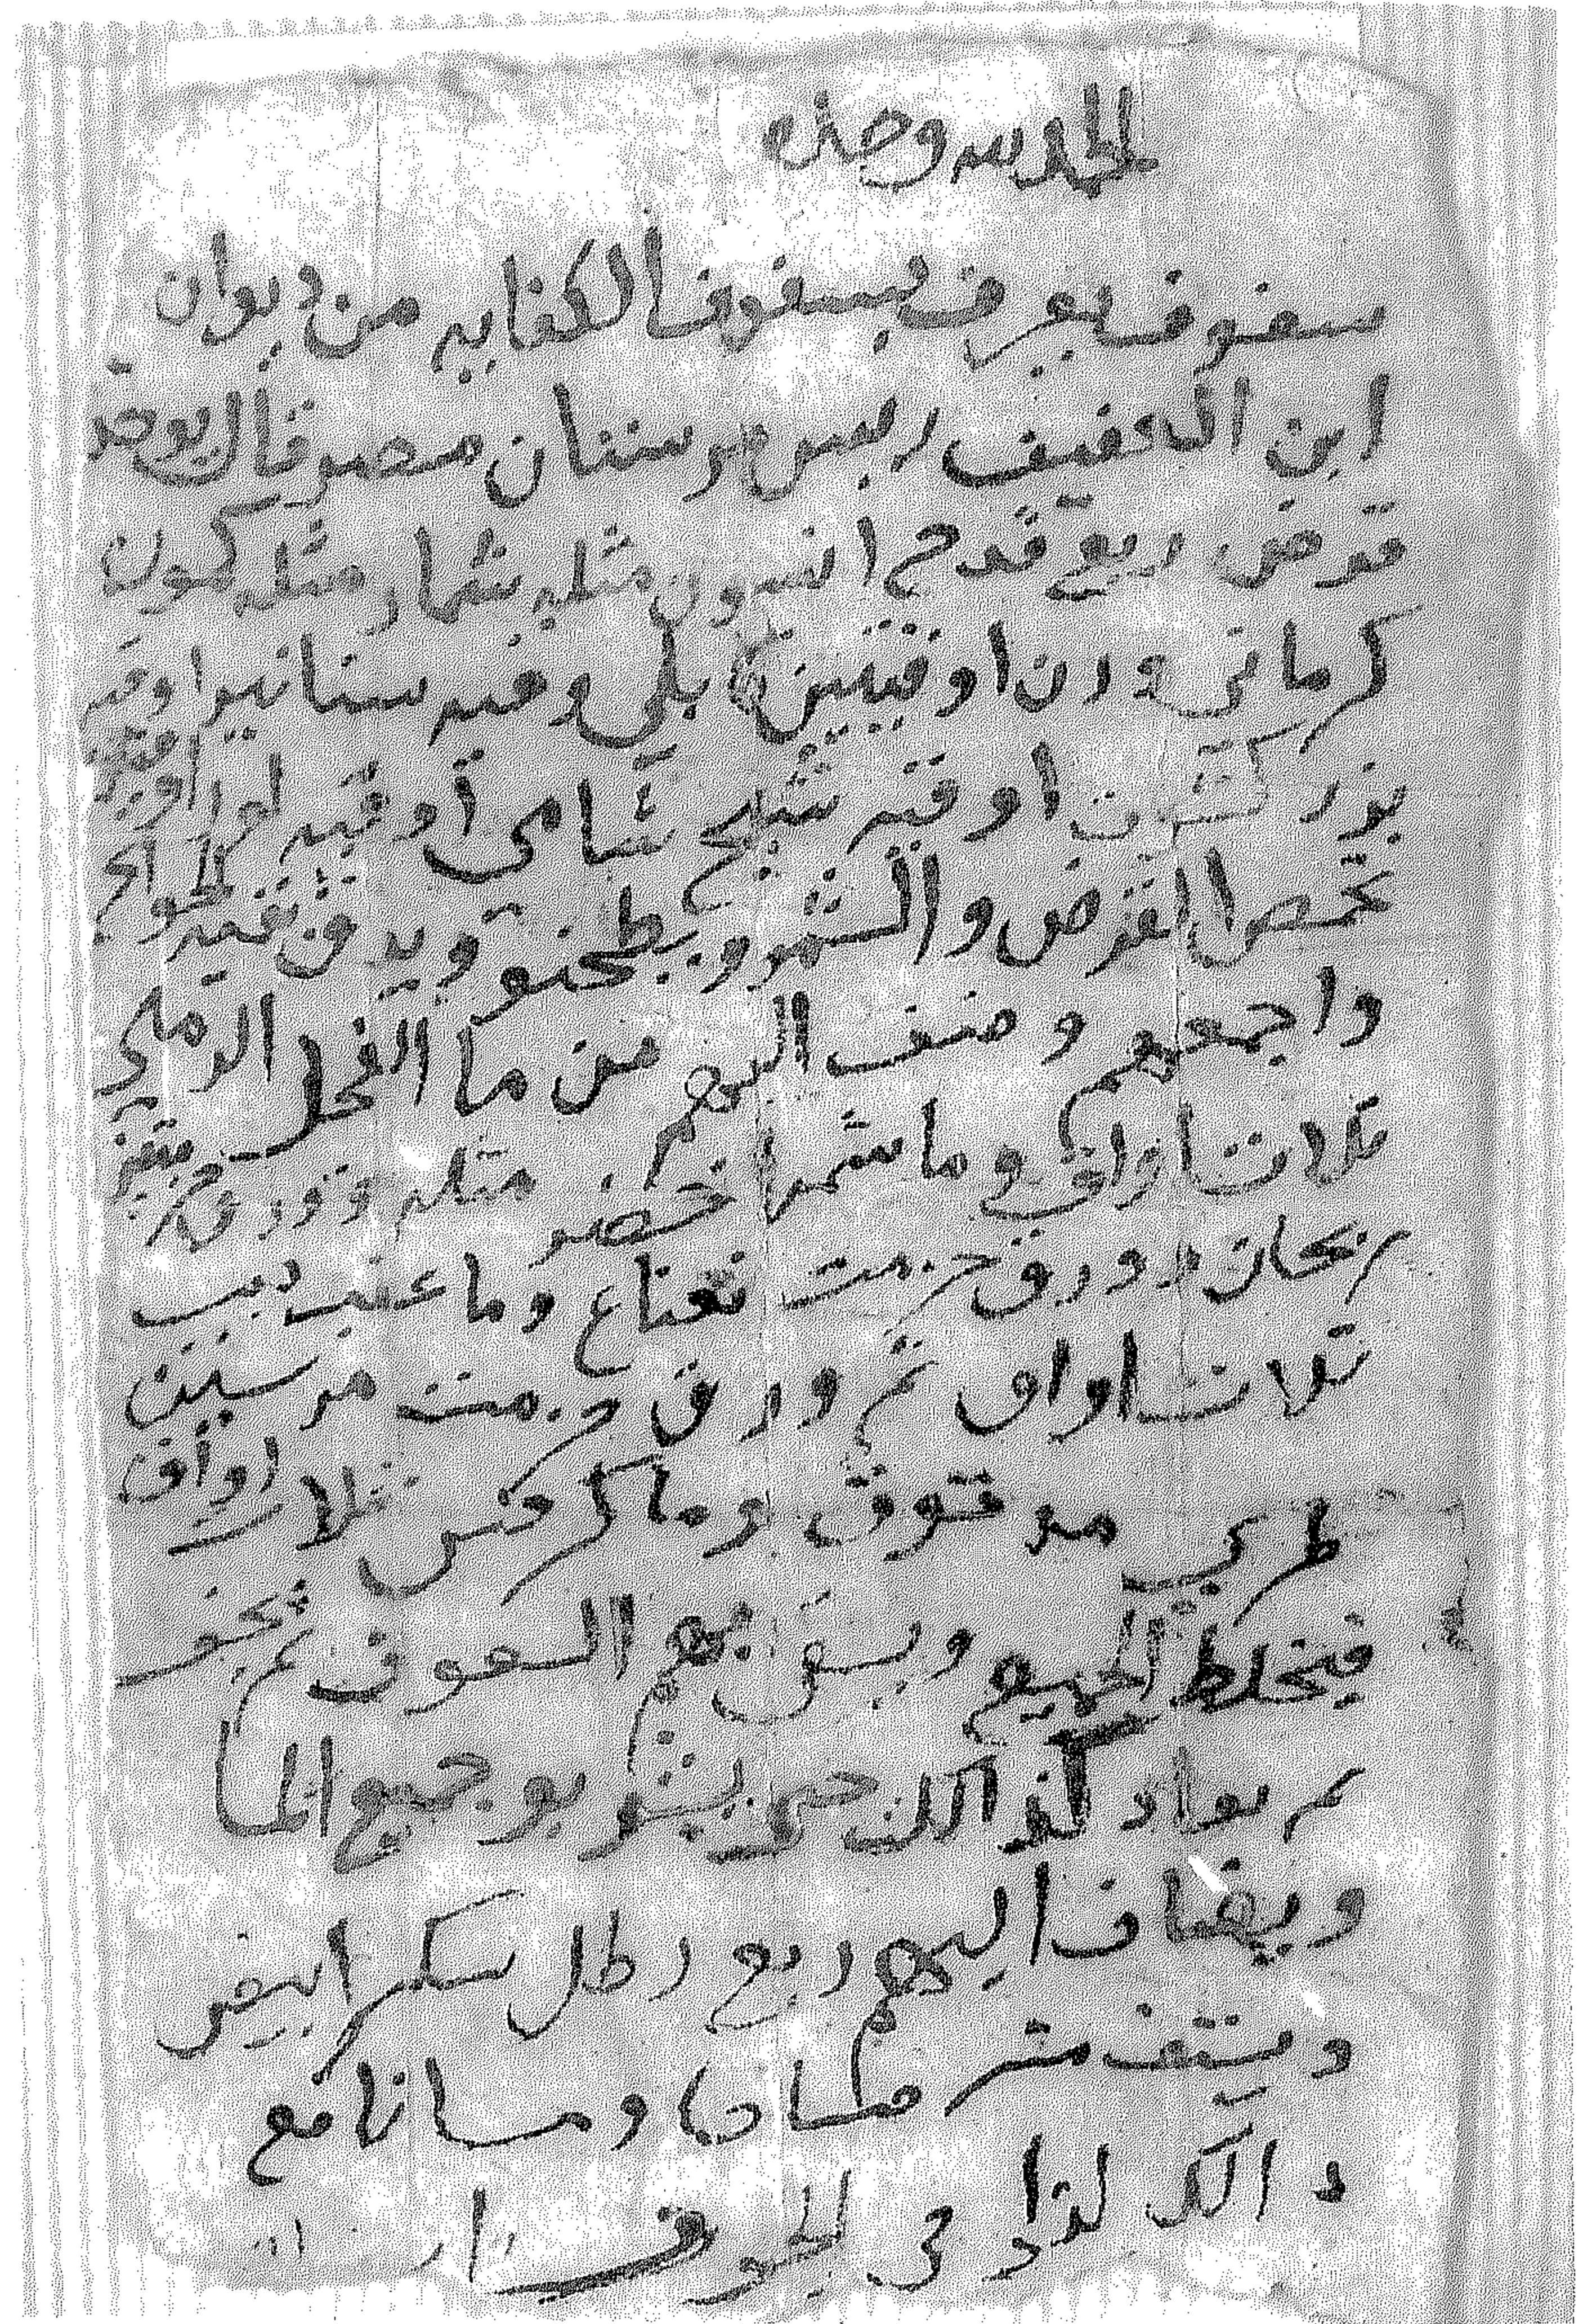 الحمد لله وحده
سفوف يعرف بسفوف الكفايه من ديوان
ابن العفيف ريس مرستان مصر قال يوخد
قرض ربع قدح انسون مثله شمار مثله كمون
كرماني وزن اوقيتين وقيه سنانير اوقيه
بزر اوقيه شيح شامي اوقيه
يحمص القرض والشمر ويطحنو ويدق بقية
واجمعهم وضف اليهم من ما الفجل الرملي
ثلاث اواق وما شمر اخضر مثله وورق
ريحان وورق حزمت نعناع وما
ثلاث اواق ثم ورق حزمت مرسين
طري مدقوق وما كرفس ثلاث اواق
فيخلط الجميع ويسقى بهم السفوف ثم يجفو
ثم يعاد كذالك حتى يشربو جميع الما
ويضاف اليهم ربع رطل سكر ابيض
ويستف منه صباحا ومسا نافع
دالك لذاوى الجوف